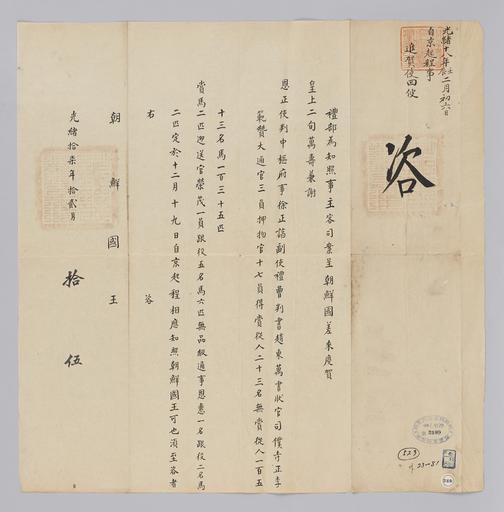 光緒十八年壬辰二月初六日
自京起程事
進賀使回便
咨
禮部為知照事主客司案呈朝鮮國差來慶賀
皇上二旬萬壽兼謝
恩正使判中樞府事徐正諄副使禮曹判書趙東萬書狀官司僕寺正李
範贊大通官三員押物官十七員得賞從人二十三名無賞從人一百五
十三名馬一百三十五匹
賞馬二匹迎送官榮茂一員跟役五名馬六匹無品級通事恩惠一名跟役二名馬
二匹定於十二月十九日自京起程相應知照朝鮮國王可也須至咨者
右 咨
朝鮮國王
光緒拾柒年拾貳月 拾伍
2189
523
23-81